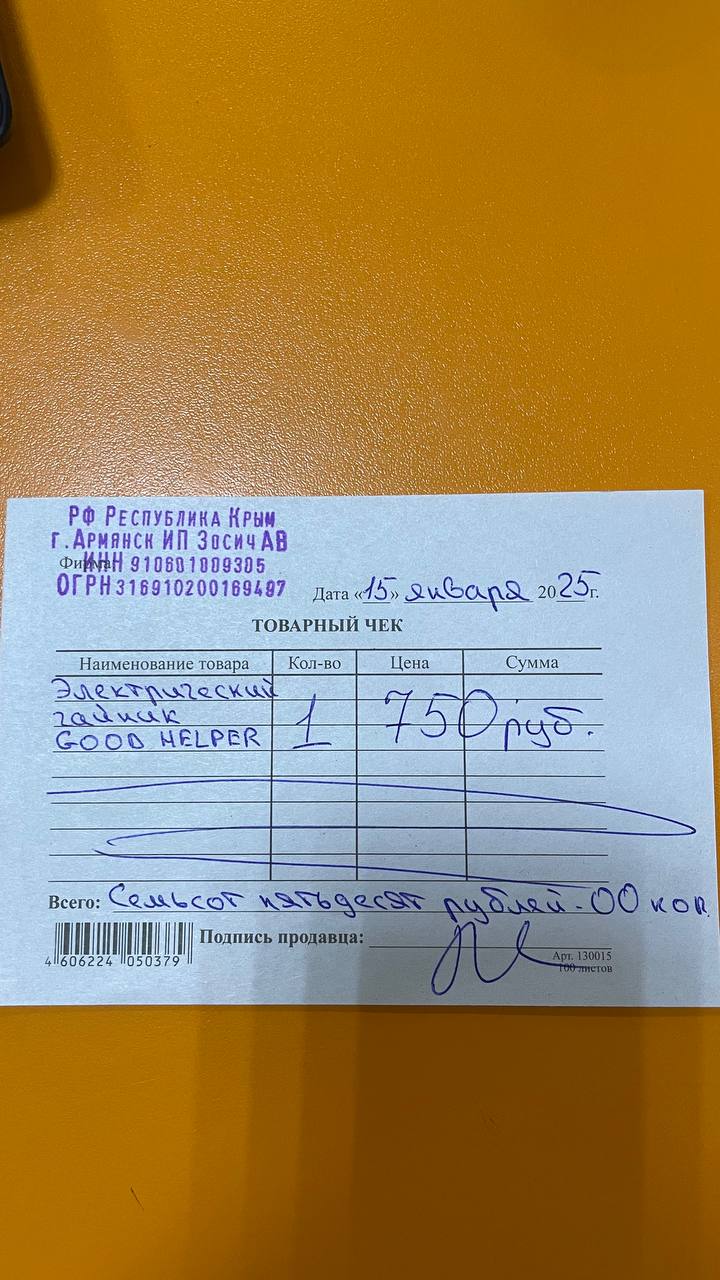 РФ Республика Крым
г. Армянск ИП Зосич АВ
Фирма ИНН 910601809305
ОГРН 316910200169497
Дата «15» января 2025г.
ТОВАРНЫЙ ЧЕК
Наименование товара Кол-во Цена Сумма
Электрический
чайник
GOOD HELPER 1 750 руб.
Всего: Семьсот пятьдесят рублей - 00 коп.
Подпись продавца:
4 606224 050379
Арт. 130015
100 листов